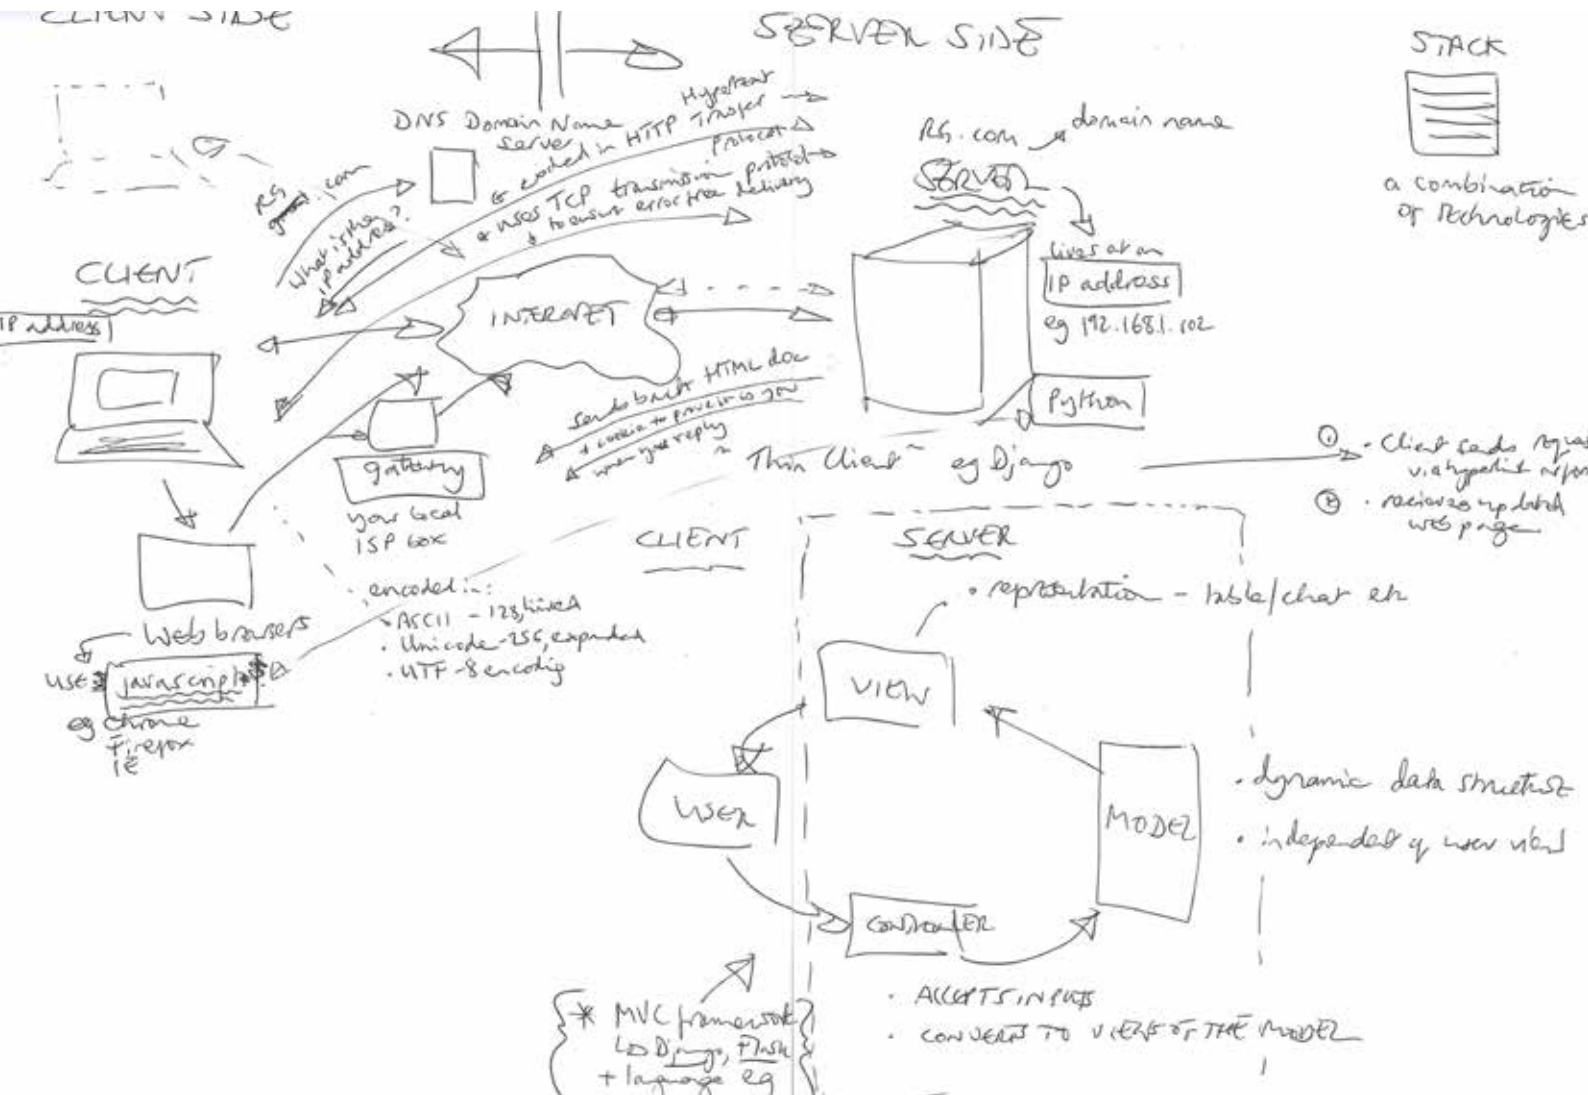 CLIENT SIDE
SERVER SIDE
STACK
a combination
of technologies
DNS Domain Name
Server
Hypertext
encoded in HTTP Transfer
Protocol
* uses TCP transmission protocol
to ensure error free delivery
RG.com
domain name
SERVER
lives at an
IP address
eg 192.168.1.102
Python
RG
.com
What is the
IP address?
CLIENT
IP address
INTERNET
sends back HTML doc
+ cookie to prove it is you
when you reply
"Thin Client" eg Django
① . Client sends
via hyperlink
② . recieves updated
web page
gateway
your local
ISP box
Web browsers
USE
javascript
eg chrome
Firefox
IE
encoded in:
. ASCII - 128, limited
. Unicode - 256, expanded
. UTF-8 encoding
CLIENT
SERVER
. representation - table/chat etc
VIEW
USER
MODEL
. dynamic data structure
. independent of user view
CONTROLLER
. ACCEPTS INPUTS
. CONVERTS TO VIEWS OF THE MODEL
* MVC framework
Django, Flask
+ language eg